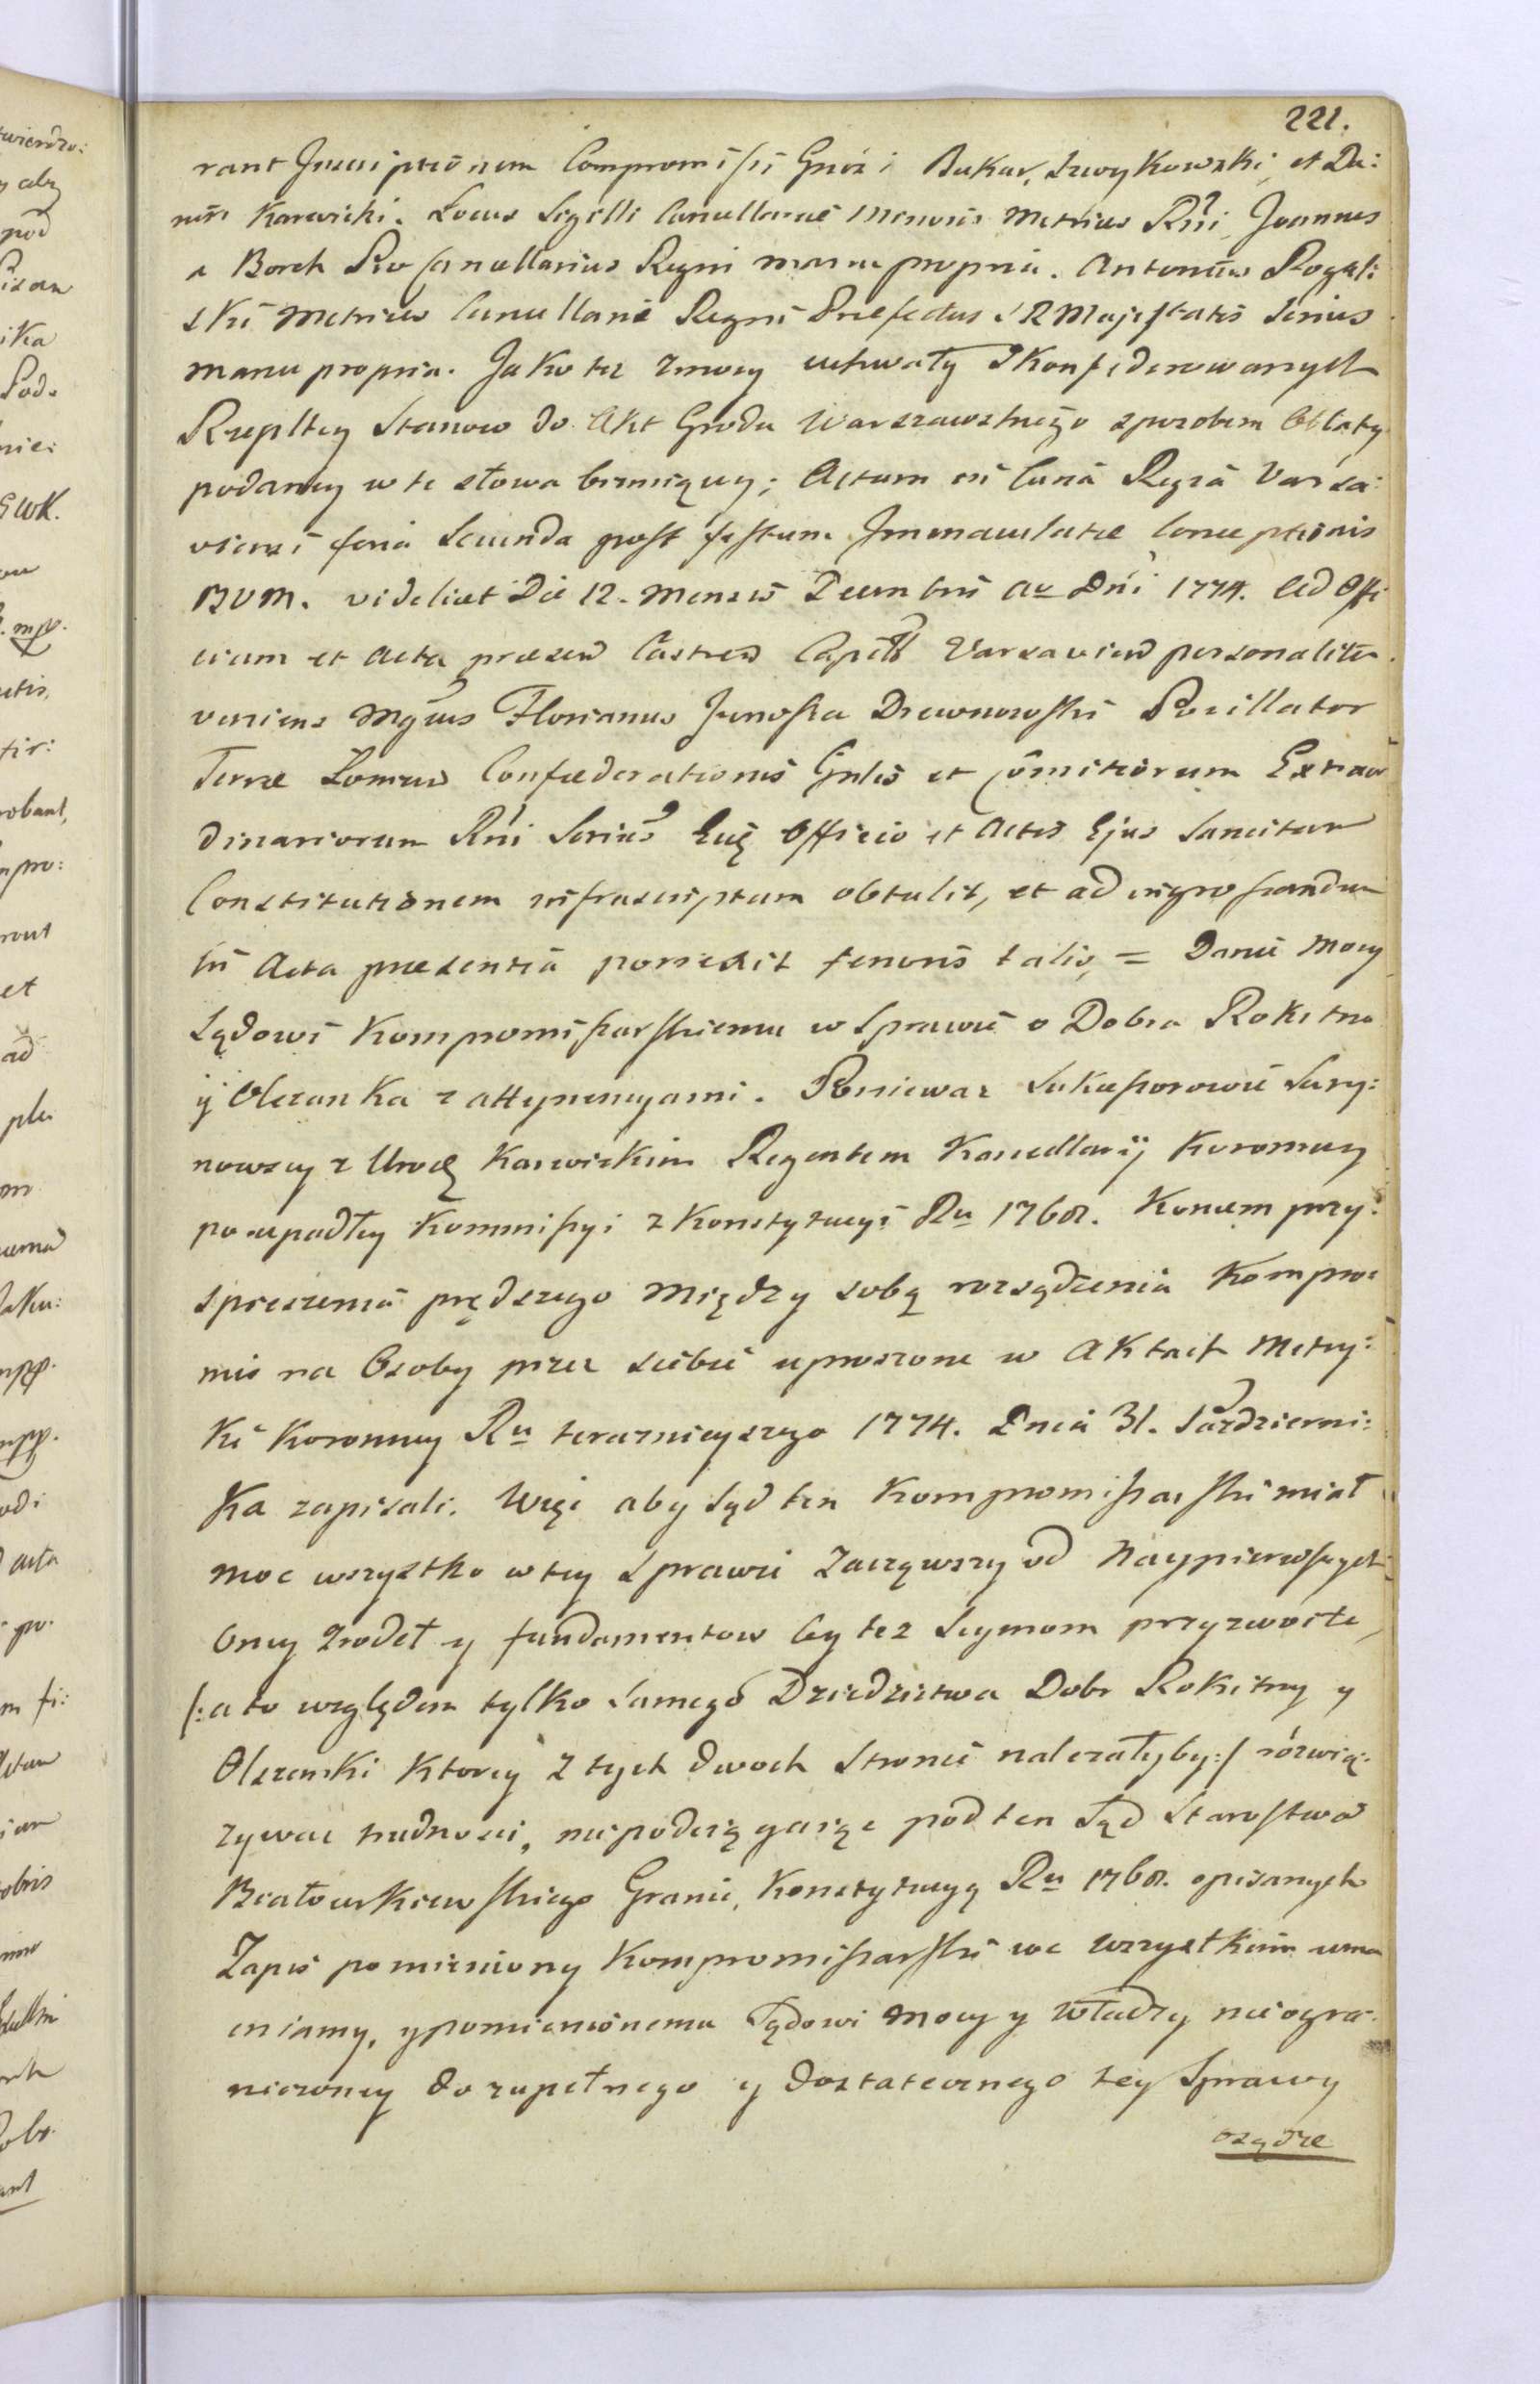 221.
rant Inscriptionem Compromissi Gnosi Bukar, Szwykowski, et Da:
nus Karwicki. Locus Sigilli Cancellariae Minoris Metrices Rni, Joannes
a Borch Pro Cancellarius Regni manu propria. Antonius Rogali
ski Metrices Cancellariae Regni Praefectus S R Majestatis Srius
manu propria. Jako tez z mocy uchwały Skonfederowanych
Rzepltey Stanow do Akt Grodu Warszawskiego sposobem Oblaty
podaney w te słowa brzmiącey; Actum in Curia Regia Varsa:
viensi feria Secunda post festum Immaculatae Conceptionis
BVM. videlicet Die 12. Mensis Decembris Ao Dni 1774. Ad Offi
cium et Acta praesen Castren Capitl Varsavien personaliter
veniens Mgcus Florianus Junosza Drewnowski Pocillator
Terrae Łomzen Confoederationis Gnlis et Comitiorum Extraor
dinariorum Rni Srius Eid Officio et Actis Ejus Sancitam
Constitutionem infrascriptam obtulit, et ad ingrossandum
in Acta praesentia porrexit tenoris talis, = Danie Mocy
Sądowi Kompromissarskiemu w Sprawie o Dobra Rokitno
y Olszanka z attynencyami. Poniewaz Sukcessorowie Sury:
nowscy z Urod Karwickim Regentem Kancellaryi Koronney
po upadłey Kommissyi z Konstytucyi Ru 1768. Koncem przy:
spieszenia prędszego Między sobą rozsądzenia Kompro:
mis na Osoby przez siebie uproszone w Aktach Metry:
ki Koronney Ru terazniejszego 1774. Dnia 31. Pazdzierni:
ka zapisali. Więc aby Sąd ten Kompromissarski miał
moc wszystko w tey Sprawie Zacząwszy od Naypierwszych
Oney zrodeł y fundamentow by tez Seymom przyzwoite,
/: a to względem tylko Samego Dziedzictwa Dobr Rokitny y
Olszanki ktorey z tych dwoch Stronie nalezałyby :/ rózwią:
zywac trudnosci, nie podciągaiąc pod ten Sąd Starostwa
Białocerkiewskiego Granic, Konstytucyą Ru 1768. opisanych
Zapis pomieniony Kompromissarski we wszystkim umac
niamy, y pomienionemu Sądowi Mocy y Władzy nieogra:
niczoney do zupełnego y dostatecznego tey Sprawy
osądze